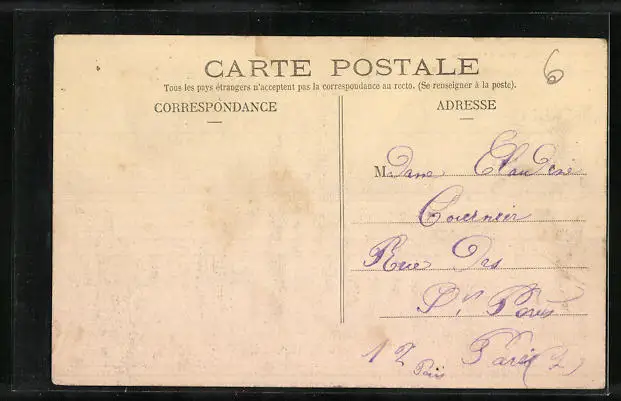 CARTE POSTALE
6
Tous les pays étrangers n'acceptent pas la correspondance au recto. (Se renseigner à la poste).
CORRESPONDANCE
ADRESSE
Madame Claudine
Cournier
Rue des
Pts Pères
12 Paris Paris